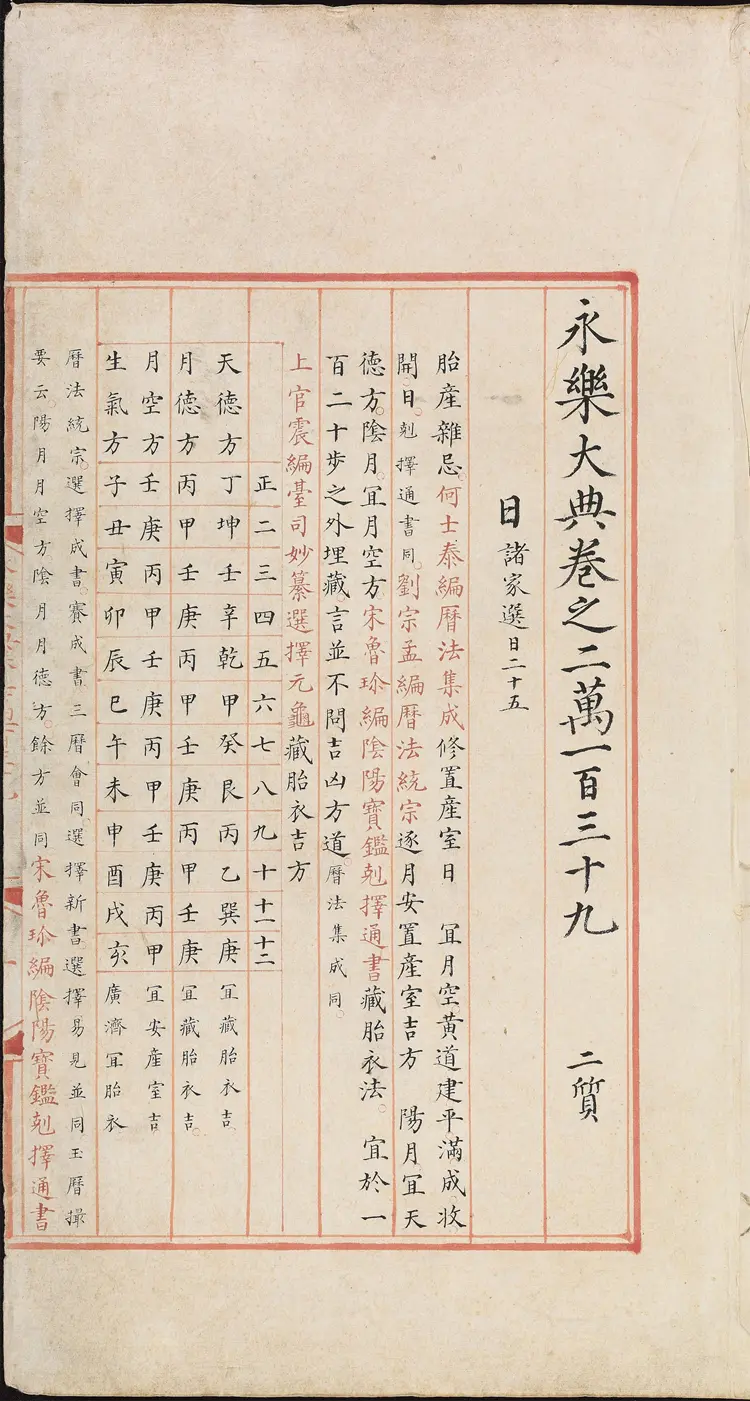 永樂大典卷之二萬一百三十九 二質
日 諸家選日二十五
胎産雜忌。何士泰編曆法集成修置産室日 宜月空黄道建平滿成收
開日。剋擇通書同。劉宗孟編曆法統宗逐月安置産室吉方 陽月宜天
德方。陰月。宜月空方。宋魯珍編陰陽寳鑑剋擇通書藏胎衣法。宜於一
百二十步之外埋藏。言並不問吉凶方道。曆法集成同。
上官震編臺司妙纂選擇元龜藏胎衣吉方
正 二 三 四 五 六 七 八 九 十 十一 十二
天德方 丁 坤 壬 辛 乾 甲 癸 艮 丙 乙 巽 庚 宜藏胎衣吉
月德方 丙 甲 壬 庚 丙 甲 壬 庚 丙 甲 壬 庚 宜藏胎衣吉。
月空方 壬 庚 丙 甲 壬 庚 丙 甲 壬 庚 丙 甲 宜安産室吉
生氣方 子 丑 寅 卯 辰 巳 午 未 申 酉 戌 亥 廣濟宜胎衣
曆法統宗。選擇成書。賽成書。三曆會同。選擇新書。選擇易見並同玉曆撮
要云陽月月空方陰月月德方。餘方並同宋魯珍編陰陽寳鑑剋擇通書